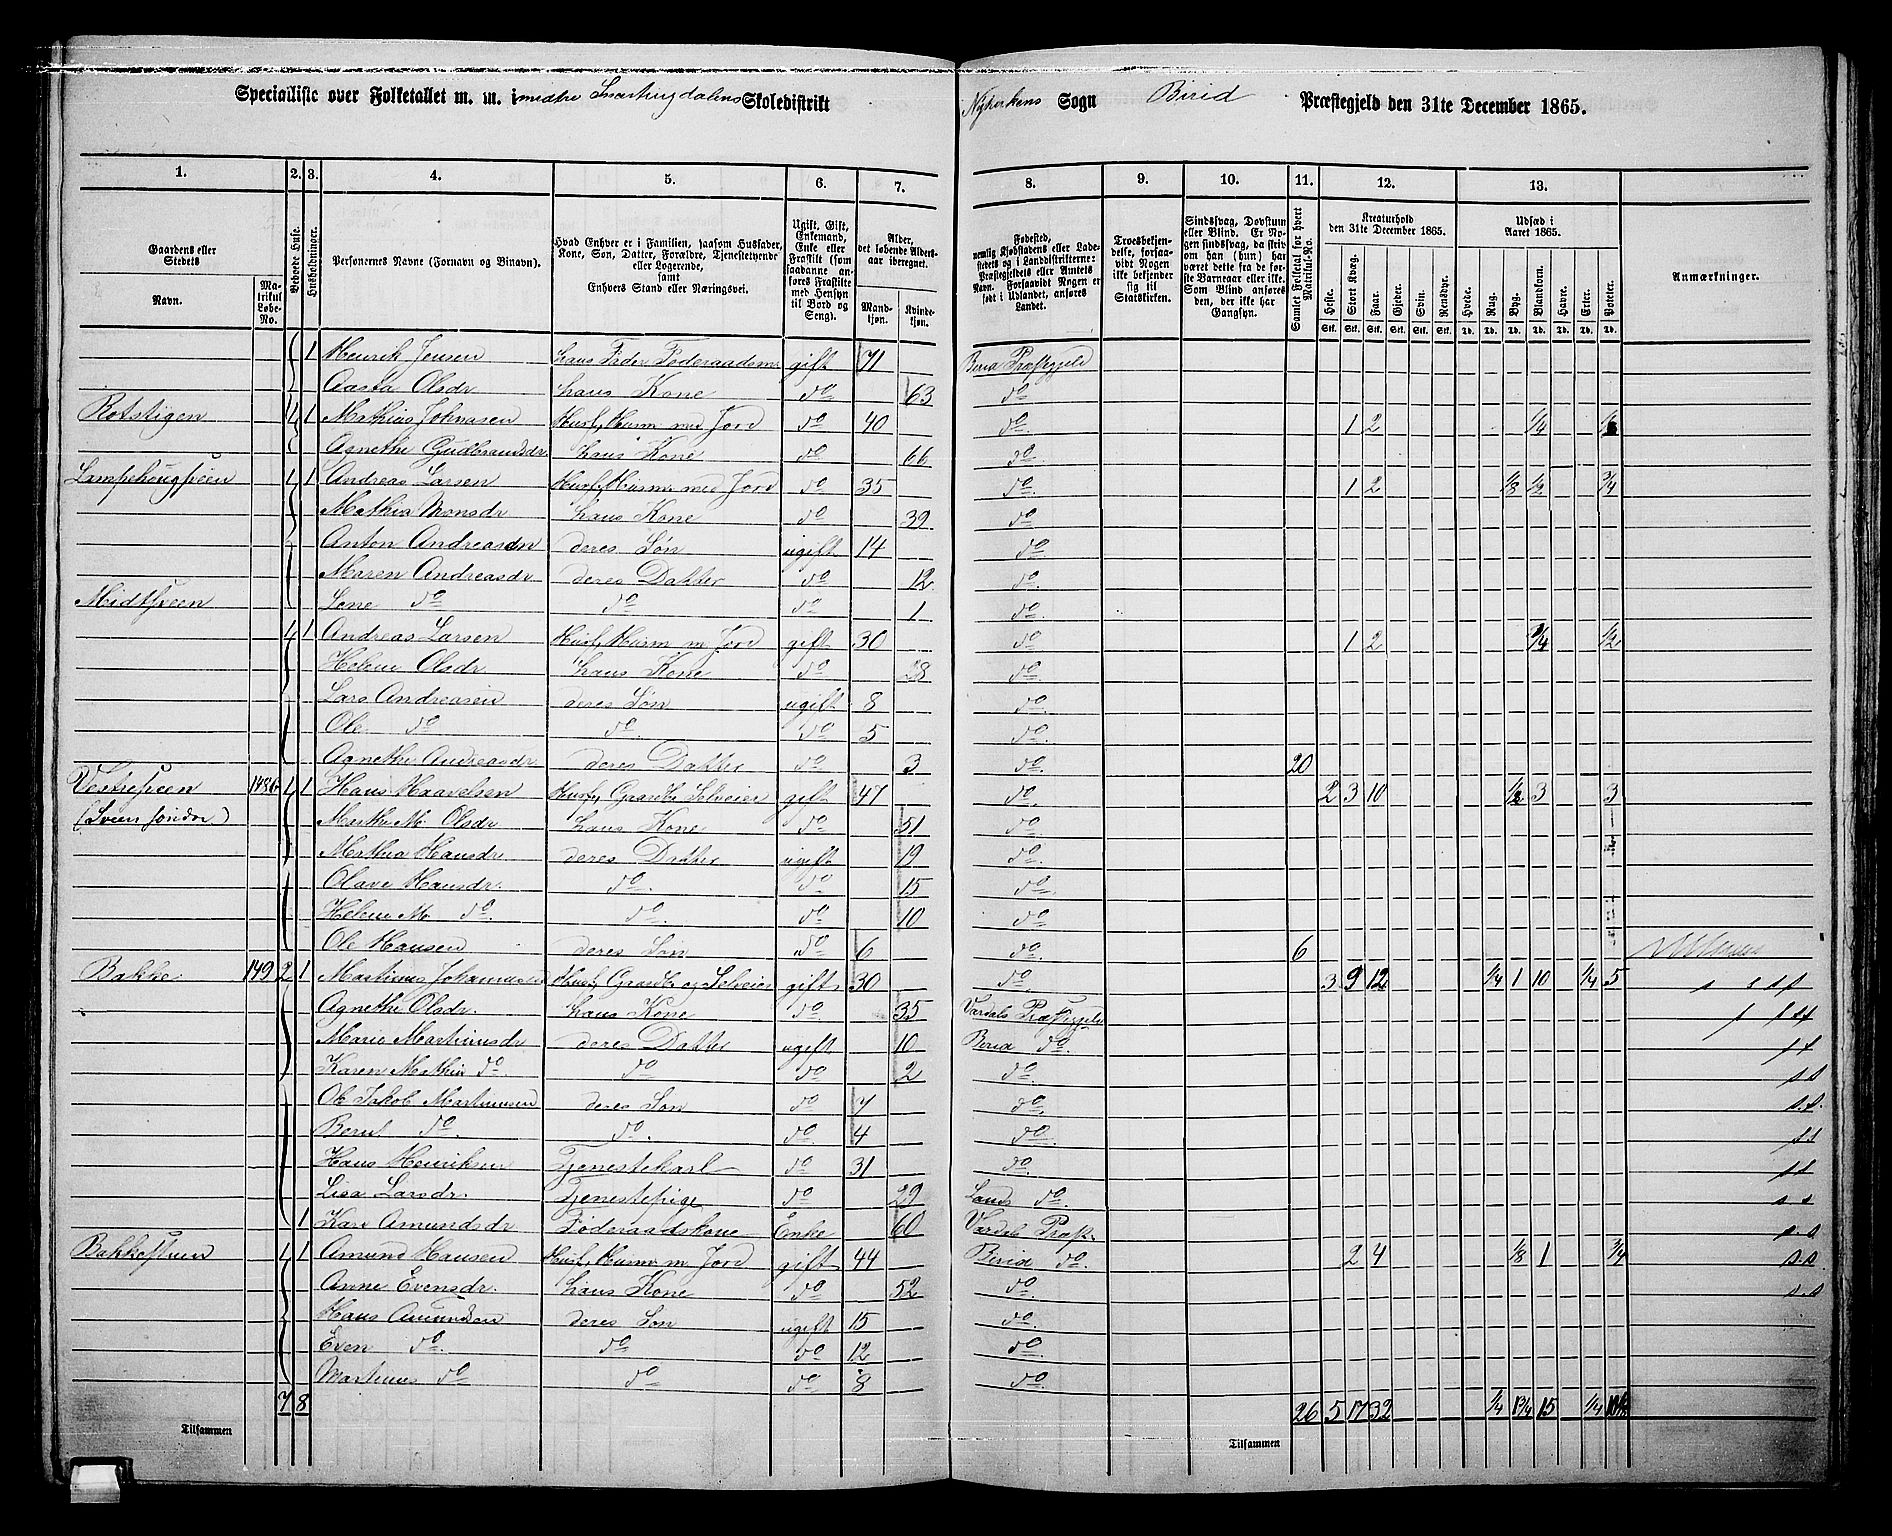 Specialliste over Folketallet m. m. i nedre Snertingdalens Skoledistrikt Nykirkens Sogn Birid Præstegjeld den 31te December 1865.
1. 2. 3. 4. 5. 6. 7. 8. 9. 10. 11. 12. 13.
Gaardens eller Stedets Navn. Matrikul Løbe-No. Beboede Huse. Husholdninger. Personernes Navne (Fornavn og Binavn). Hvad Enhver er i Familien, saasom Husfader, Kone, Søn, Datter, Forældre, Tjenestetyende eller Logerende, samt Enhvers Stand eller Næringsvei. Ugift, Gift, Enkemand, Enke eller Fraskilt (som saadanne anføres Fraskilte med Hensyn til Bord og Seng). Alder, det løbende Alders-aar iberegnet. Mand-kjøn. Kvinde-kjøn. Fødested, nemlig Kjøbstadens eller Ladestedets og i Landdistrikterne: Præstegjeldets eller Amtets Navn. Forsaavidt Nogen er født i Udlandet, anføres Landet. Troesbekjendelse, forsaavidt Nogen ikke bekjender sig til Statskirken. Sindssvag, Døvstum eller Blind. Er Nogen sindssvag, da skriv om han (hun) har været dette fra de første Barneaar eller ikke. Som Blind anføres den, der ikke har Gangsyn. Samlet Folketal for hvert Matrikul-No. Kreaturhold den 31te December 1865. Heste. Stort Kvæg. Faar. Gjeder. Svin. Rensdyr. Udsæd i Aaret 1865. Hvede. Rug. Byg. Blandkorn. Havre. Erter. Poteter. Anmærkninger.
1 Henrik Jensen hans Fader Føderaadsm. gift 71 Birid Præstegjeld
Aasta Olsdr hans Kone do 63 do
Rotstigen 1 1 Mathias Johnasen Husf, Husm med Jord do 40 do 1 2 1/4
Agnethe Gudbrandsdr. hans Kone do 66 do
1 1 Andreas Larsen Husf, Husm med Jord do 35 do 1 2 1/8 1/2 3/4
Mathia Monsdr hans Kone do 39 do
Anton Andreasen deres Søn ugift 14 do
Maren Andreasdr deres Datter do 12 do
Midtsveen Lene do do do 1 do
1 1 Andreas Larsen Husf, Husm m Jord gift 30 do 1 2 3/4 1/2
Helene Olsdr hans Kone do 28 do
Lars Andreasen deres Søn ugift 8 do
Ole do do do 5 do
Agnethe Andreasdr deres Datter do 3 do 20
Vestresveen 148b 1 1 Hans Haavelsen Husf, Gaardbr Selveier gift 47 do 2 3 10 1/2 3 3
(Sveen søndre) Marthe M. Olsdr. hans Kone do 51 do
Mathia Hansdr. deres Datter ugift 19 do
Olave Hansdr. do do 15 do
Helene M. do do do 10 do
Ole Hansen deres Søn do 6 do 6
Bakke 149 2 1 Martinus Johannesen Husf, Gaardbr og Selveier gift 30 do 3 9 12 1/4 1 10 1/4 5
Agnethe Olsdr. hans Kone do 35 Vardals Præstegjeld
Marie Martinusdr deres Datter ugift 10 Birid do
Karen Mathia do do do 2 do
Ole Jakob Martinusen deres Søn do 7 do
Bernt do do do 4 do
Hans Henriksen Tjenestekarl do 31 do
Lisa Larsdr. Tjenestepige do 29 Lands do
1 Kari Amundsdr Føderaadskone Enke 60 Vardals Præst.
Bakkestuen 1 1 Amund Hansen Husf, Husm m Jord gift 44 Birid do 2 4 1/8 1 3/4
Anne Evensdr. hans Kone do 52 do
Hans Amundsen deres Søn ugift 15 do
Even do do do 12 do
Martinus do do do 8 do
7 8 26 5 17 32 1/4 1 3/4 15 1/4
Tilsammen Tilsammen